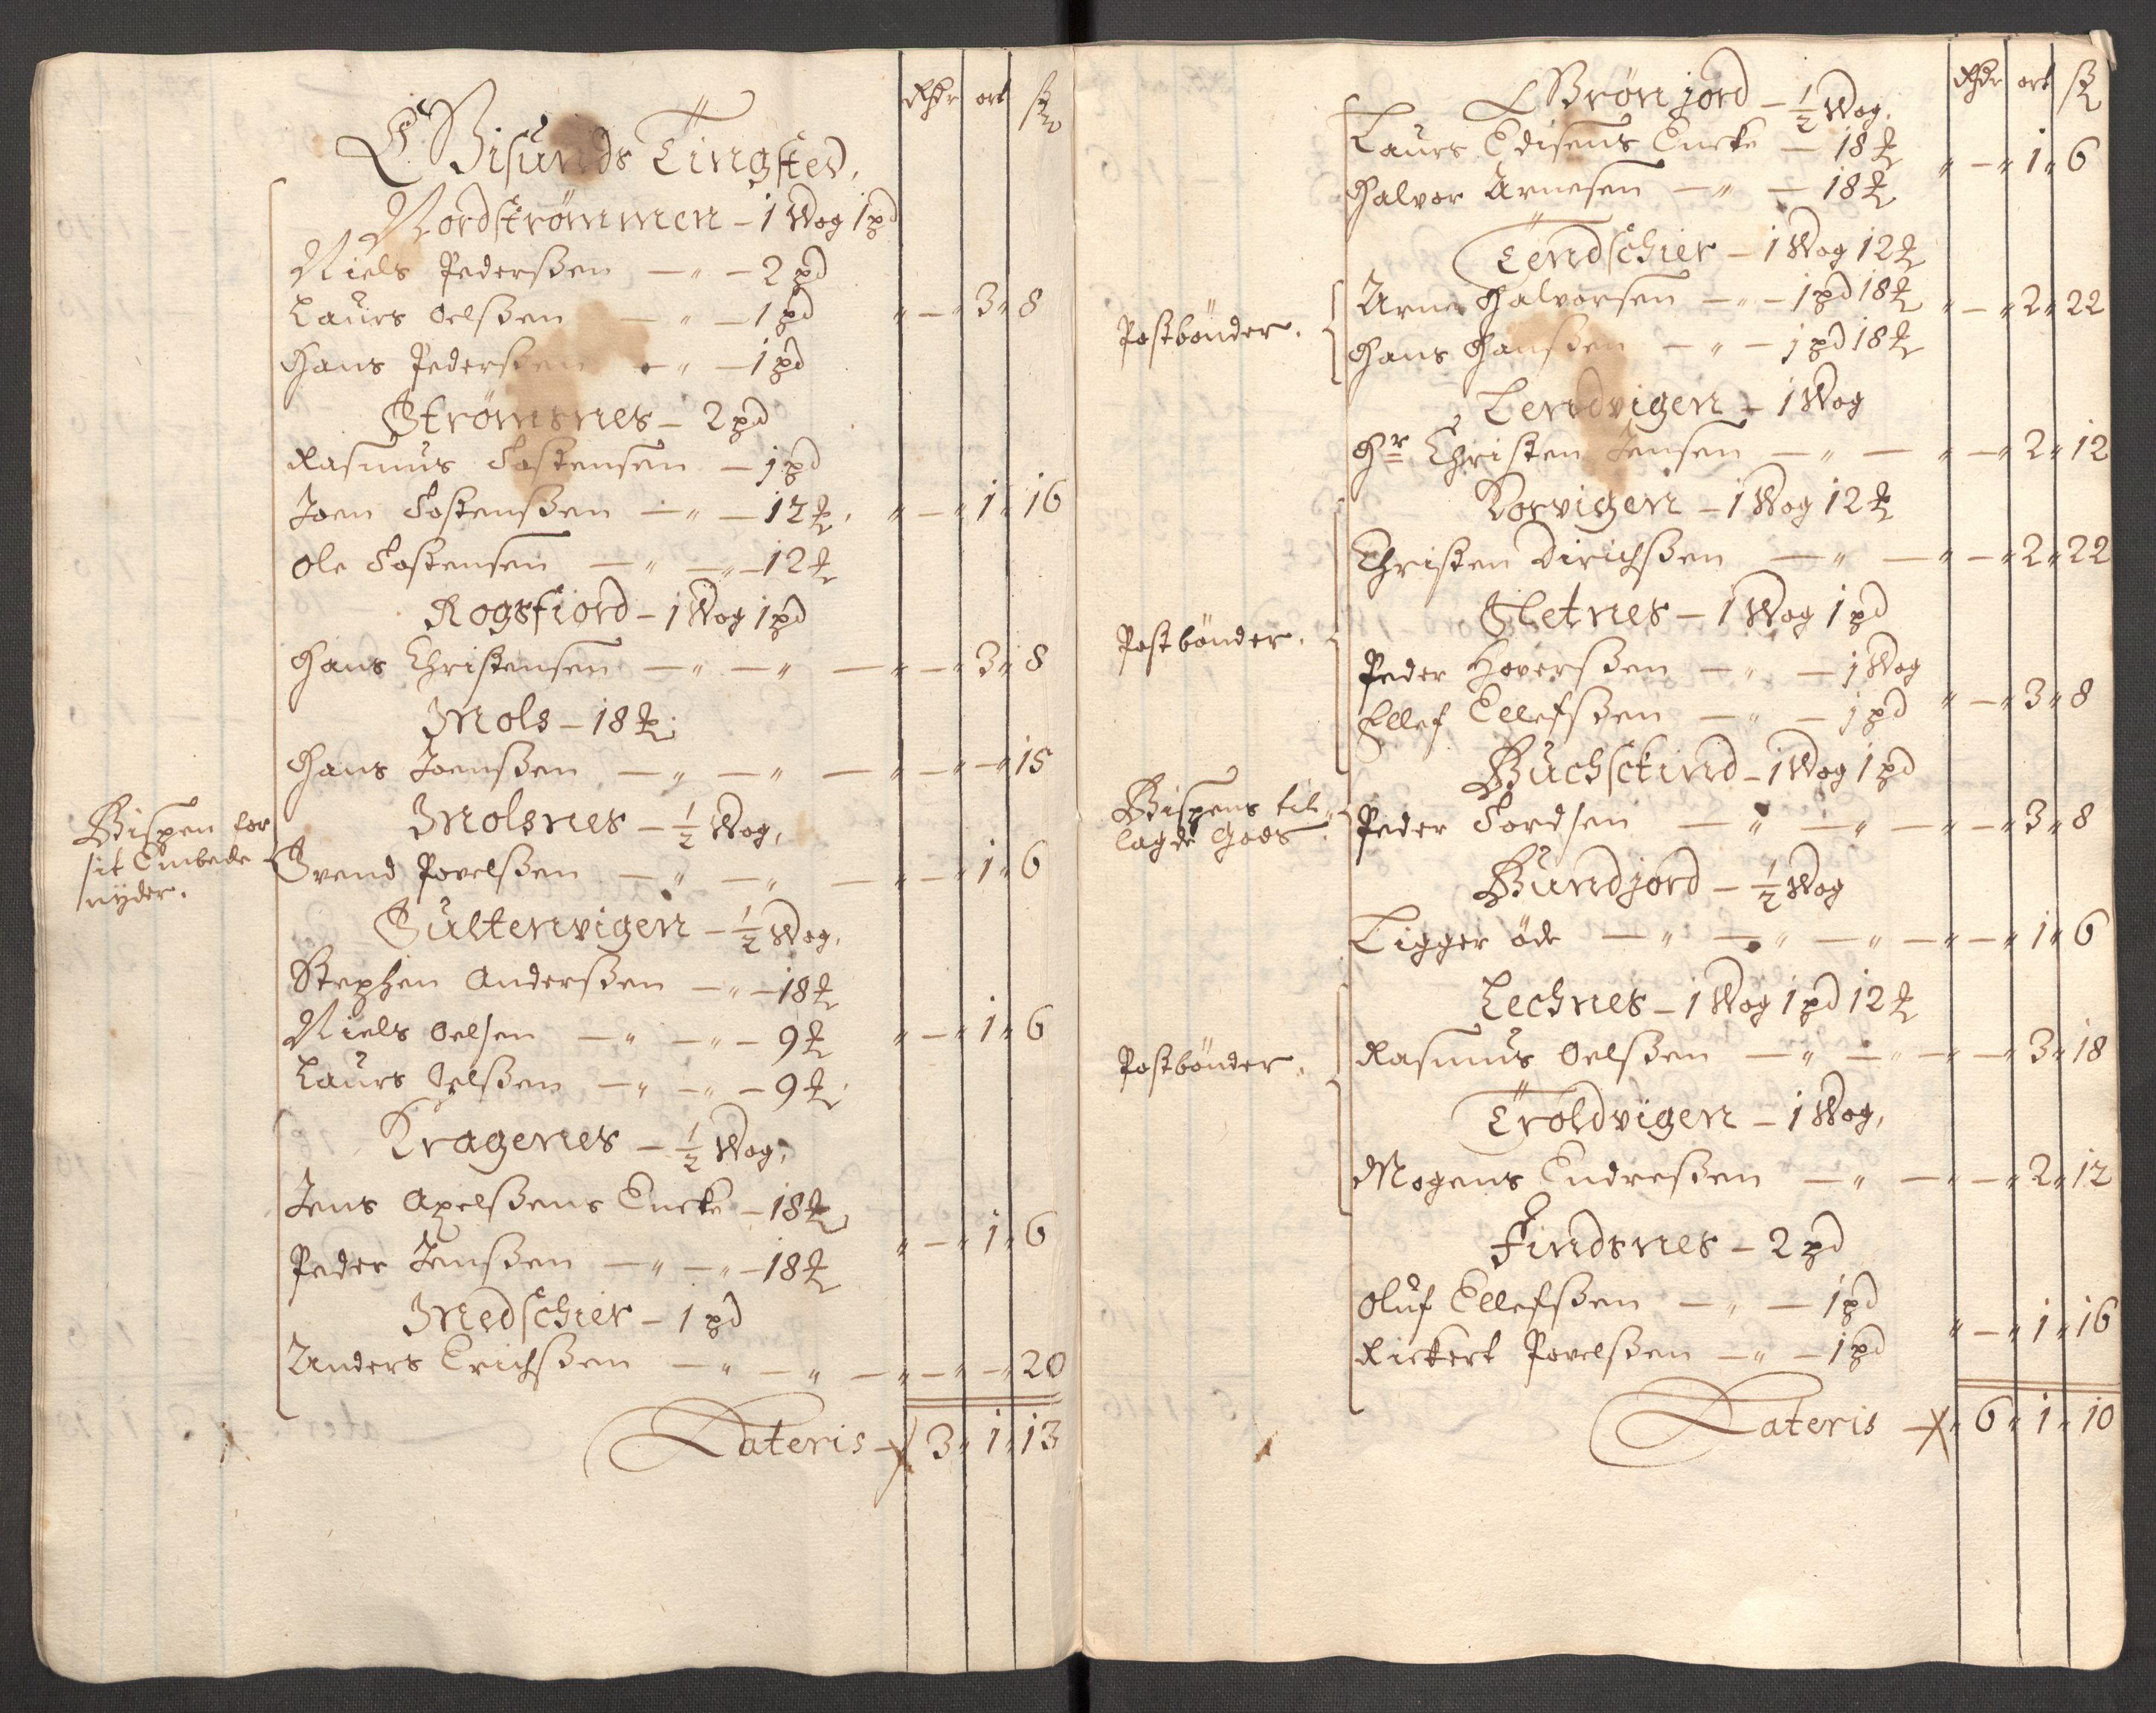 Rhdr ort ß
Gisunds Tingsted.
Nordstrømmen - 1 Wog 1 pd
Niels Pederßen - „ - 2 pd
Laurs Oelßen - „ - 1 pd „ - „ 3 „ 8
Hans Pederßen - „ - 1 pd
Strømsnes - 2 pd
Rasmus Tostensen - 1 pd
Joen Tostenßen - „ - 12 ℔. „ - „ 1 „ 16
Ole Tostensen - „ - „ - 12 ℔
Rogsfiord - 1 Wog 1 pd
Hans Christensen - „ - „ - „ - „ 3 „ 8
Mols - 18 ℔.
Hans Joenßen - „ - „ - „ - „ - „ 15
Molsnes - ½ Wog.
Bispen for
sit Embede
nyder.
Svend Povelßen - „ - „ - „ - „ 1 „ 6
Gultenvigen - ½ Wog.
Stephen Anderßen - „ - 18 ℔
Niels Oelsen - „ - „ - 9 ℔ „ - „ 1 „ 6
Laurs Oelßen - „ - „ - 9 ℔.
Kragenes - ½ Wog.
Jens Axelßens Encke - 18 ℔
Peder Jenßen - „ - „ - 18 ℔ „ - „ 1 „ 6
Medschier - 1 pd
Anders Erichßen - „ - „ - „ - „ - „ 20
Lateris - 3 „ 1 „ 13
Rhdr ort ß
Brønjord - ½ Wog.
Laurs Edisens Encke - 18 ℔ „ - „ 1 „ 6
Halvor Arnesen - „ - 18 ℔
Tendschier - 1 Wog 12 ℔
Postbønder.
Arne Halvorsen - „ - 1 pd 18 ℔ „ - „ 2 „ 22
Hans Hanßen - „ - 1 pd 18 ℔
Lendvigen - 1 Wog
Hr Christen Jensen - „ - „ - „ 2 „ 12
Korvigen - 1 Wog 12 ℔
Christen Dirichßen - „ - „ - „ 2 „ 22
Sletnes - 1 Wog 1 pd
Postbønder.
Peder Hoverßen - „ - 1 Wog
Ellef Ellefßen - „ - 1 pd „ - „ 3 „ 8
Buchsckind - 1 Wog 1 pd
Bispens til„
lagde Gods.
Peder Tordsen - „ - „ - „ - „ 3 „ 8
Bundjord - ½ Wog
Ligger øde - „ - „ - „ - „ - „ 1 „ 6
Lechnes - 1 Wog 1 pd 12 ℔
Postbønder.
Rasmus Oelßen - „ - „ - „ - „ 3 „ 18
Troldvigen - 1 Wog.
Mogens Endreßen - „ - „ - „ 2 „ 12
Findsnes - 2 pd
Oluf Ellefßen - „ - 1 pd
Rickert Povelßen - „ - 1 pd „ - „ 1 „ 16
Lateris - 6 „ 1 „ 10